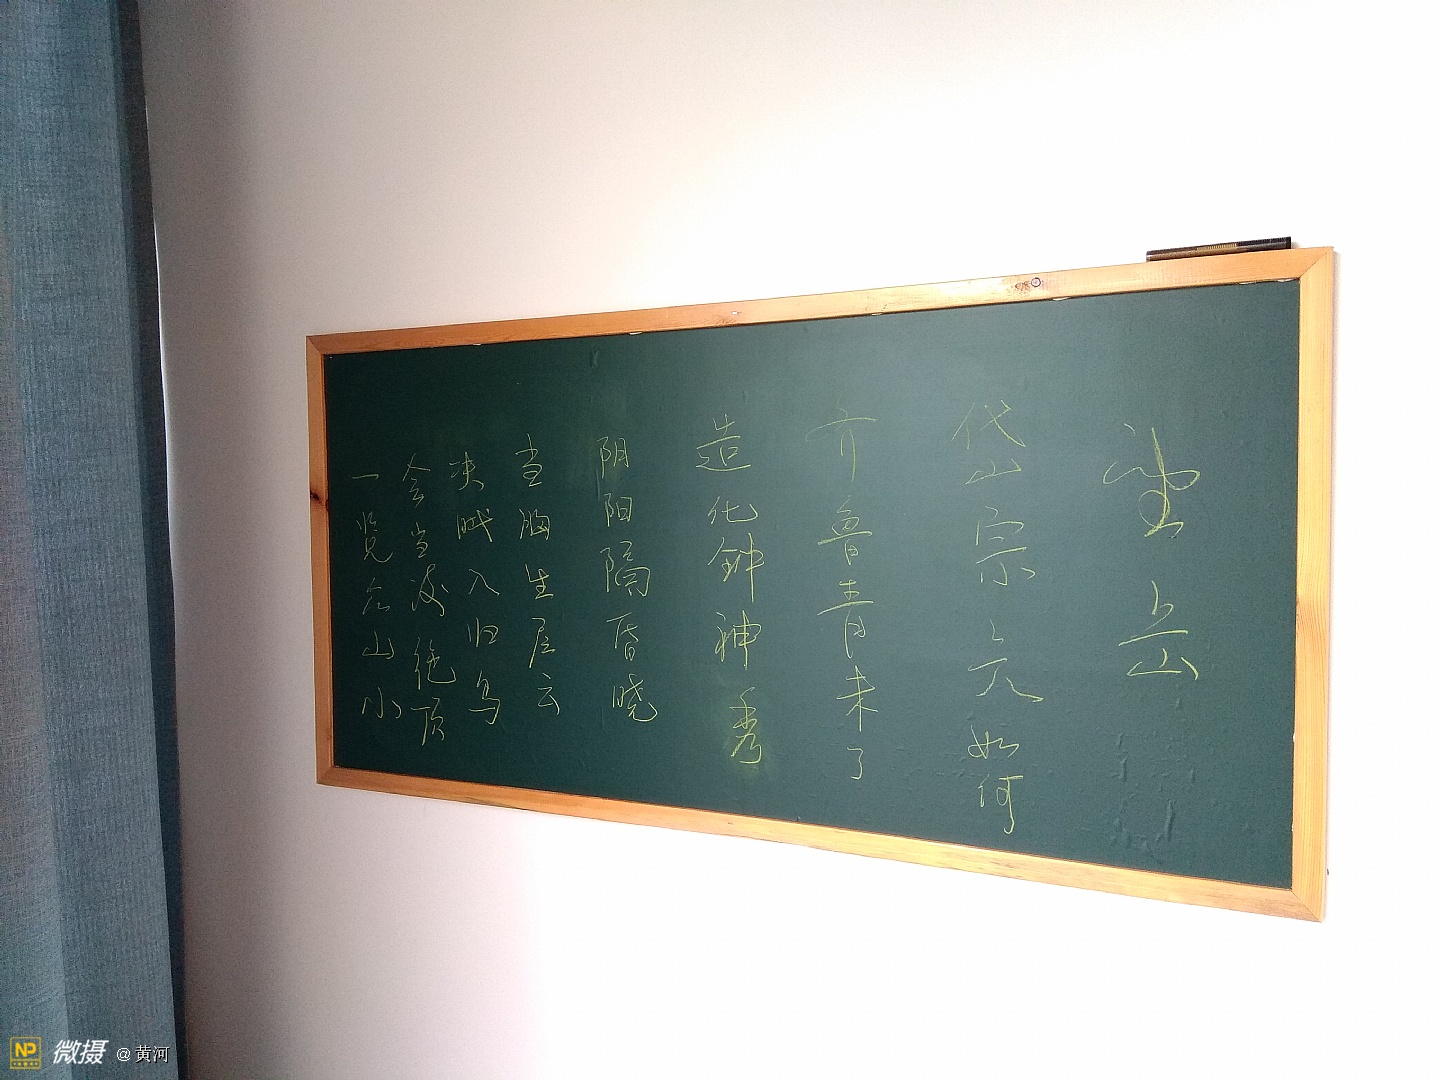 望岳
岱宗夫如何
齐鲁青未了
造化钟神秀
阴阳隔昏晓
当胸生层云
决眦入归鸟
会当凌绝顶
一览众山小
NP 微摄 @ 黄河